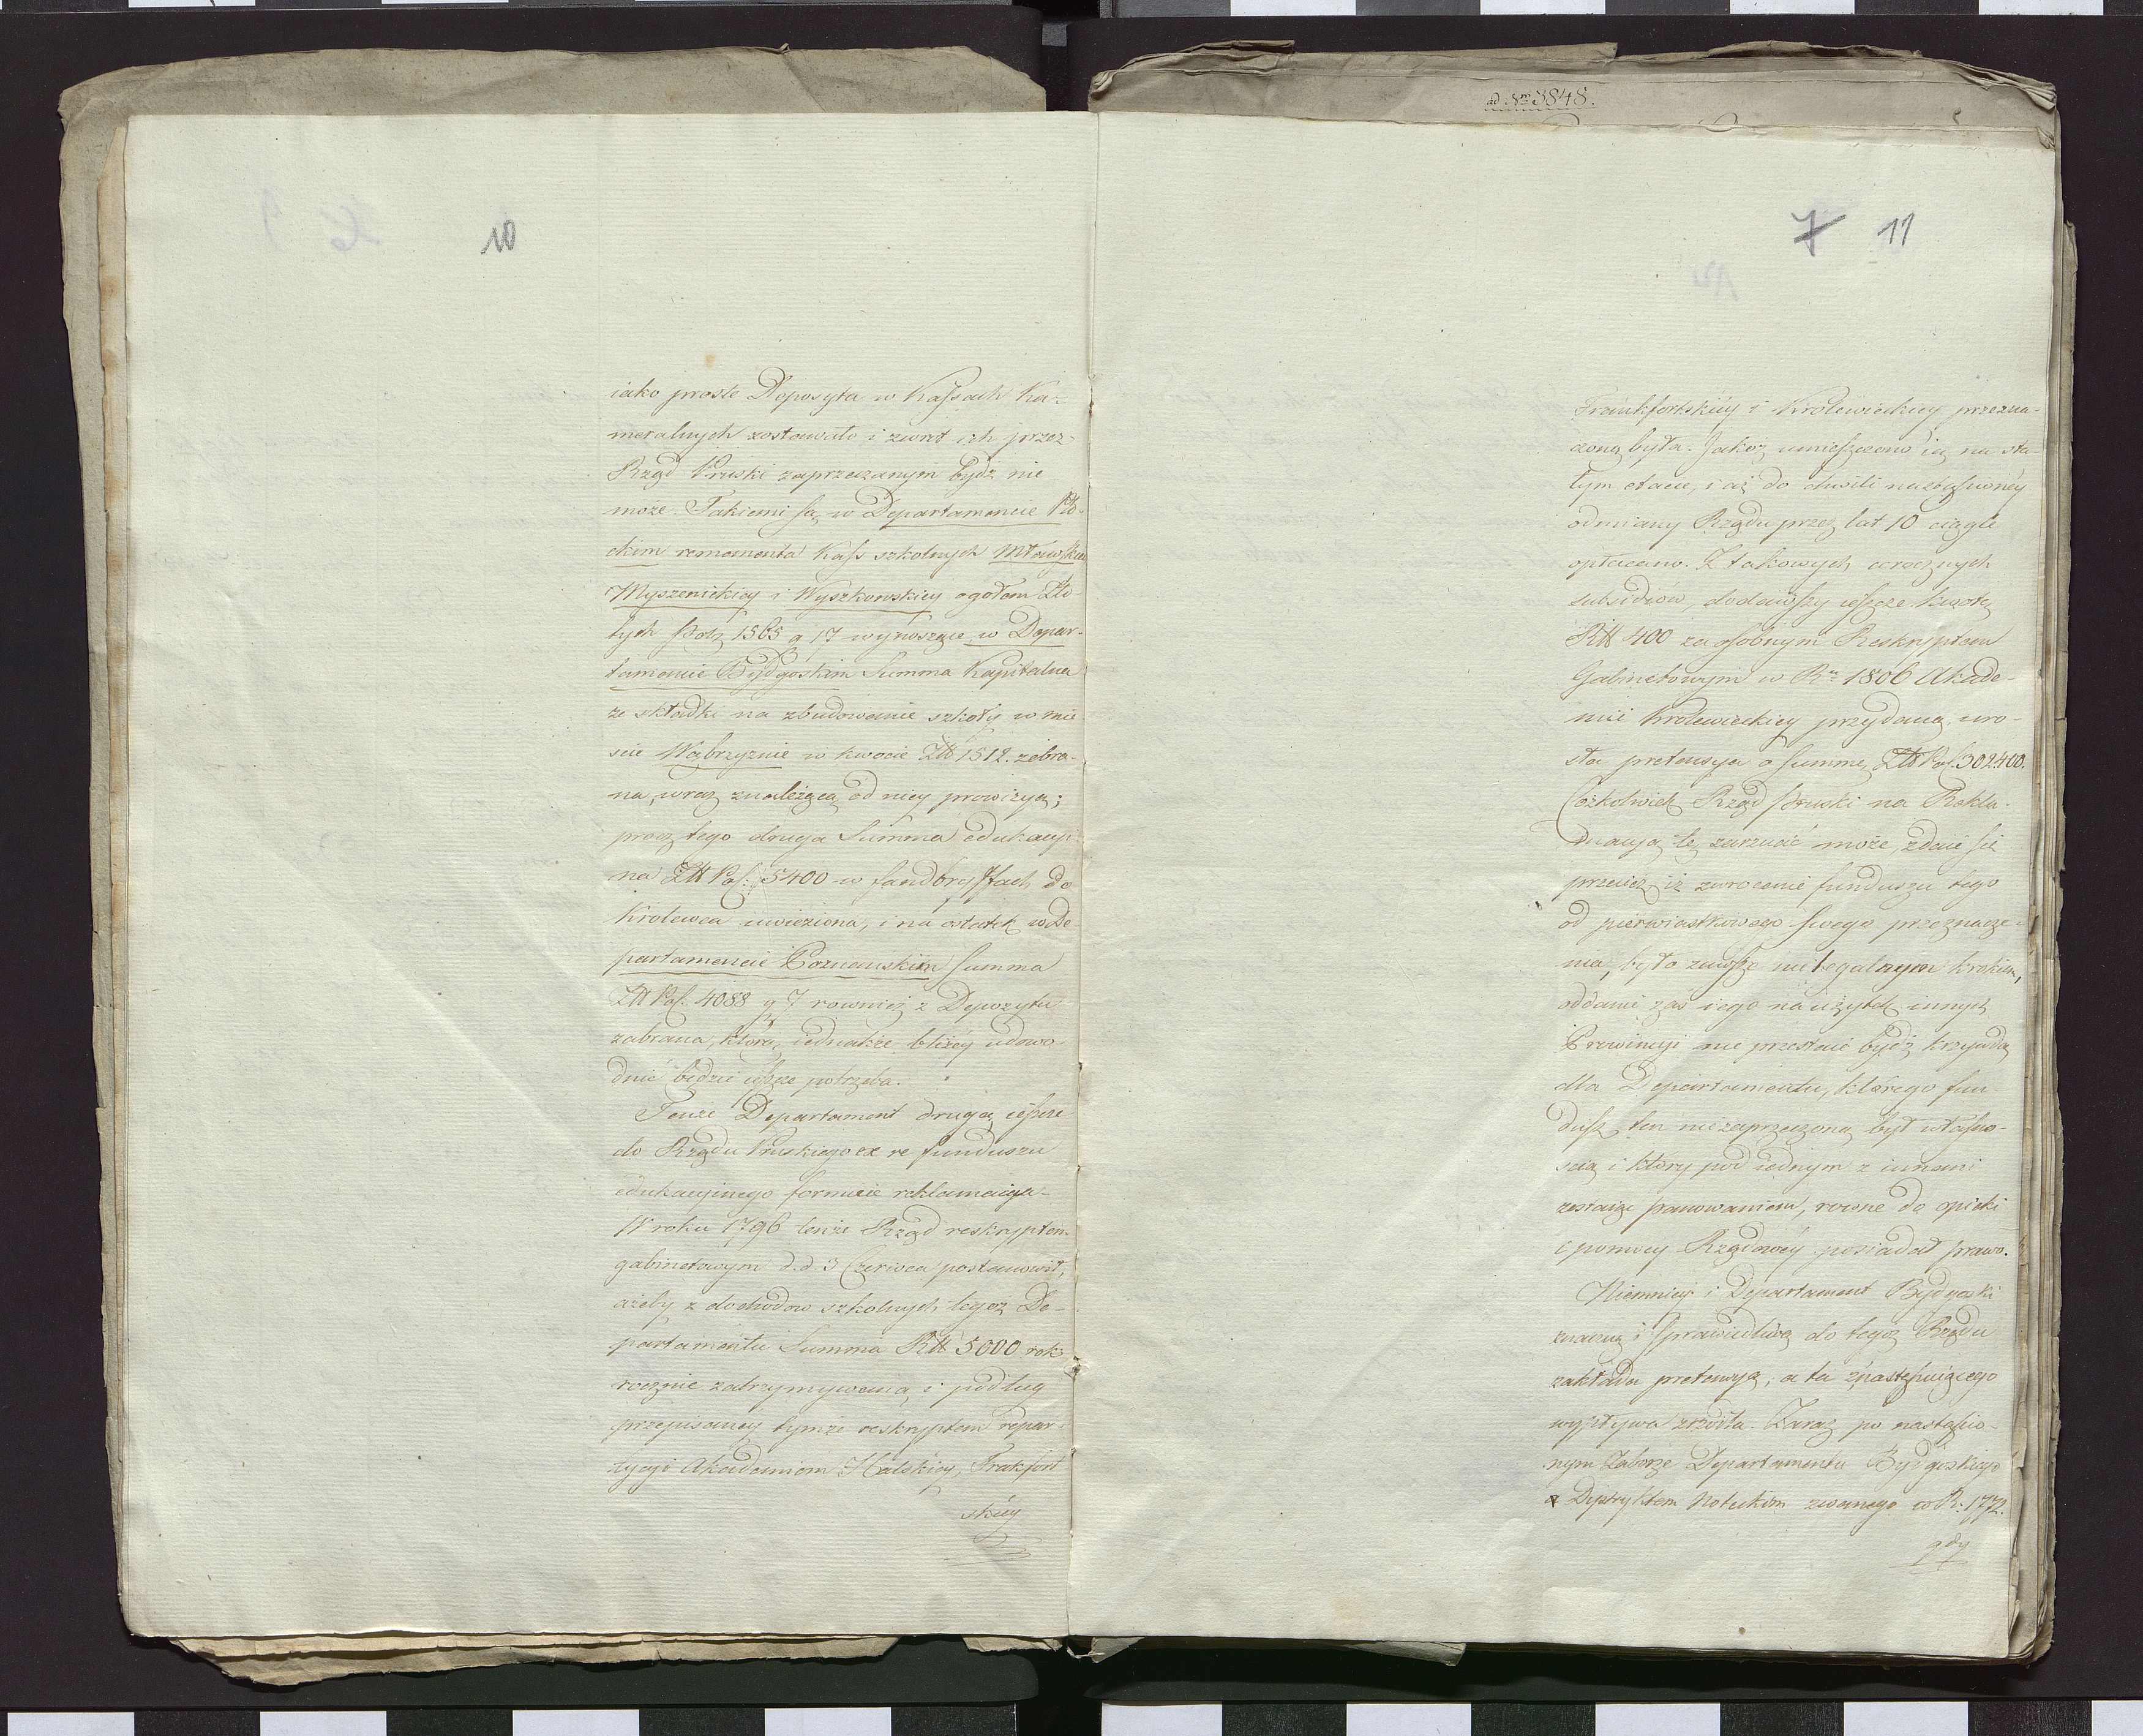 10
iako proste Depozyta w Kassach Ka-
meralnych zostawało i zwrot ich przez
Rząd Pruski zaprzeczanym bydź nie
może. Takiemi są w Departamencie Pło-
ckim remanenta Kass szkolnych Mławskiey
Myszenickiey i Wyszkowskiey ogołem Zło-
tych Pols. 1565 g 17 wynoszące w Depar-
tamencie Bydgoskim Summa Kapitalna
ze składki na zbudowanie szkoły w mie
scie Wąbrzyznie w kwocie Złł 1512. zebra-
na, wraz znależącą od niey prowizyą;
procz tego druga Summa edukacyi-
na Złł Pol: 5400 w Fandbryffach do
Krolewca uwieziona, i na ostatek w De
partamencie Poznanskim Summa
Złł Pol. 4088 g 7 rownież z Depozytu
zabrana, którą iednakże bliżey udowo-
dnić będzie ieszcze potrzeba.
Tenże Departament drugą ieszcze
do Rządu Pruskiego ex re funduszu
edukacyinego formuie reklamacyą.
W roku 1796 tenże Rząd reskryptem
gabinetowym d. d. 3 Czerwca postanowił,
ażeby z dochodow szkolnych tegoż De-
partamentu Summa Rtł 5000 rok
rocznie zatrzymywaną i podług
przepisaney tymże reskryptem repar-
tycyi Akademiom Halskiey, Frakfort
skiey
ad Nrm 3848.
7 11
Frankfortskiey i Krolewieckiey przezna-
czoną była. Jakoż umieszczono ią na sta-
łym etacie, i aż do chwili nastąpioney
odmiany Rządu przez lat 10 ciągle
opłacano. Z takowych corocznych
subsidiow, dodawszy ieszcze kwotę
Rtł 400 za osobnym Reskryptem
Gabinetowym w Ru 1806 Akade-
mii Krolewieckiey przydaną uro-
sła pretensya o Summę Złł Pol. 302400.
Cożkolwiek Rząd Pruski na Rekla-
macyą tę zarzucić może, zdaie się
przecież iż zwrocenie funduszu tego
od pierwiastkowego swego przeznacze-
nia, było zawsze nielegalnym krokiem,
oddanie zaś iego na użytek innych
Prowincyi nie przestaie bydź krzywdą
dla Departamentu, którego fun
dusz ten niezaprzeczoną był własno-
scią i który pod iednym z innemi
zostaiąc panowaniem, rowne do opieki
i pomocy Rządowey posiadał prawo.
Niemniey i Departament Bydgoski
znaczną i sprawiedliwą do tegoż Rządu
zakłada pretensyą, a ta z następuiącego
wypływa zrzodła. Zaraz po nastąpio-
nym Zaborze Departamentu Bydgoskiego
z Dystryktem Noteckim zwanego w R. 1772.
gdy